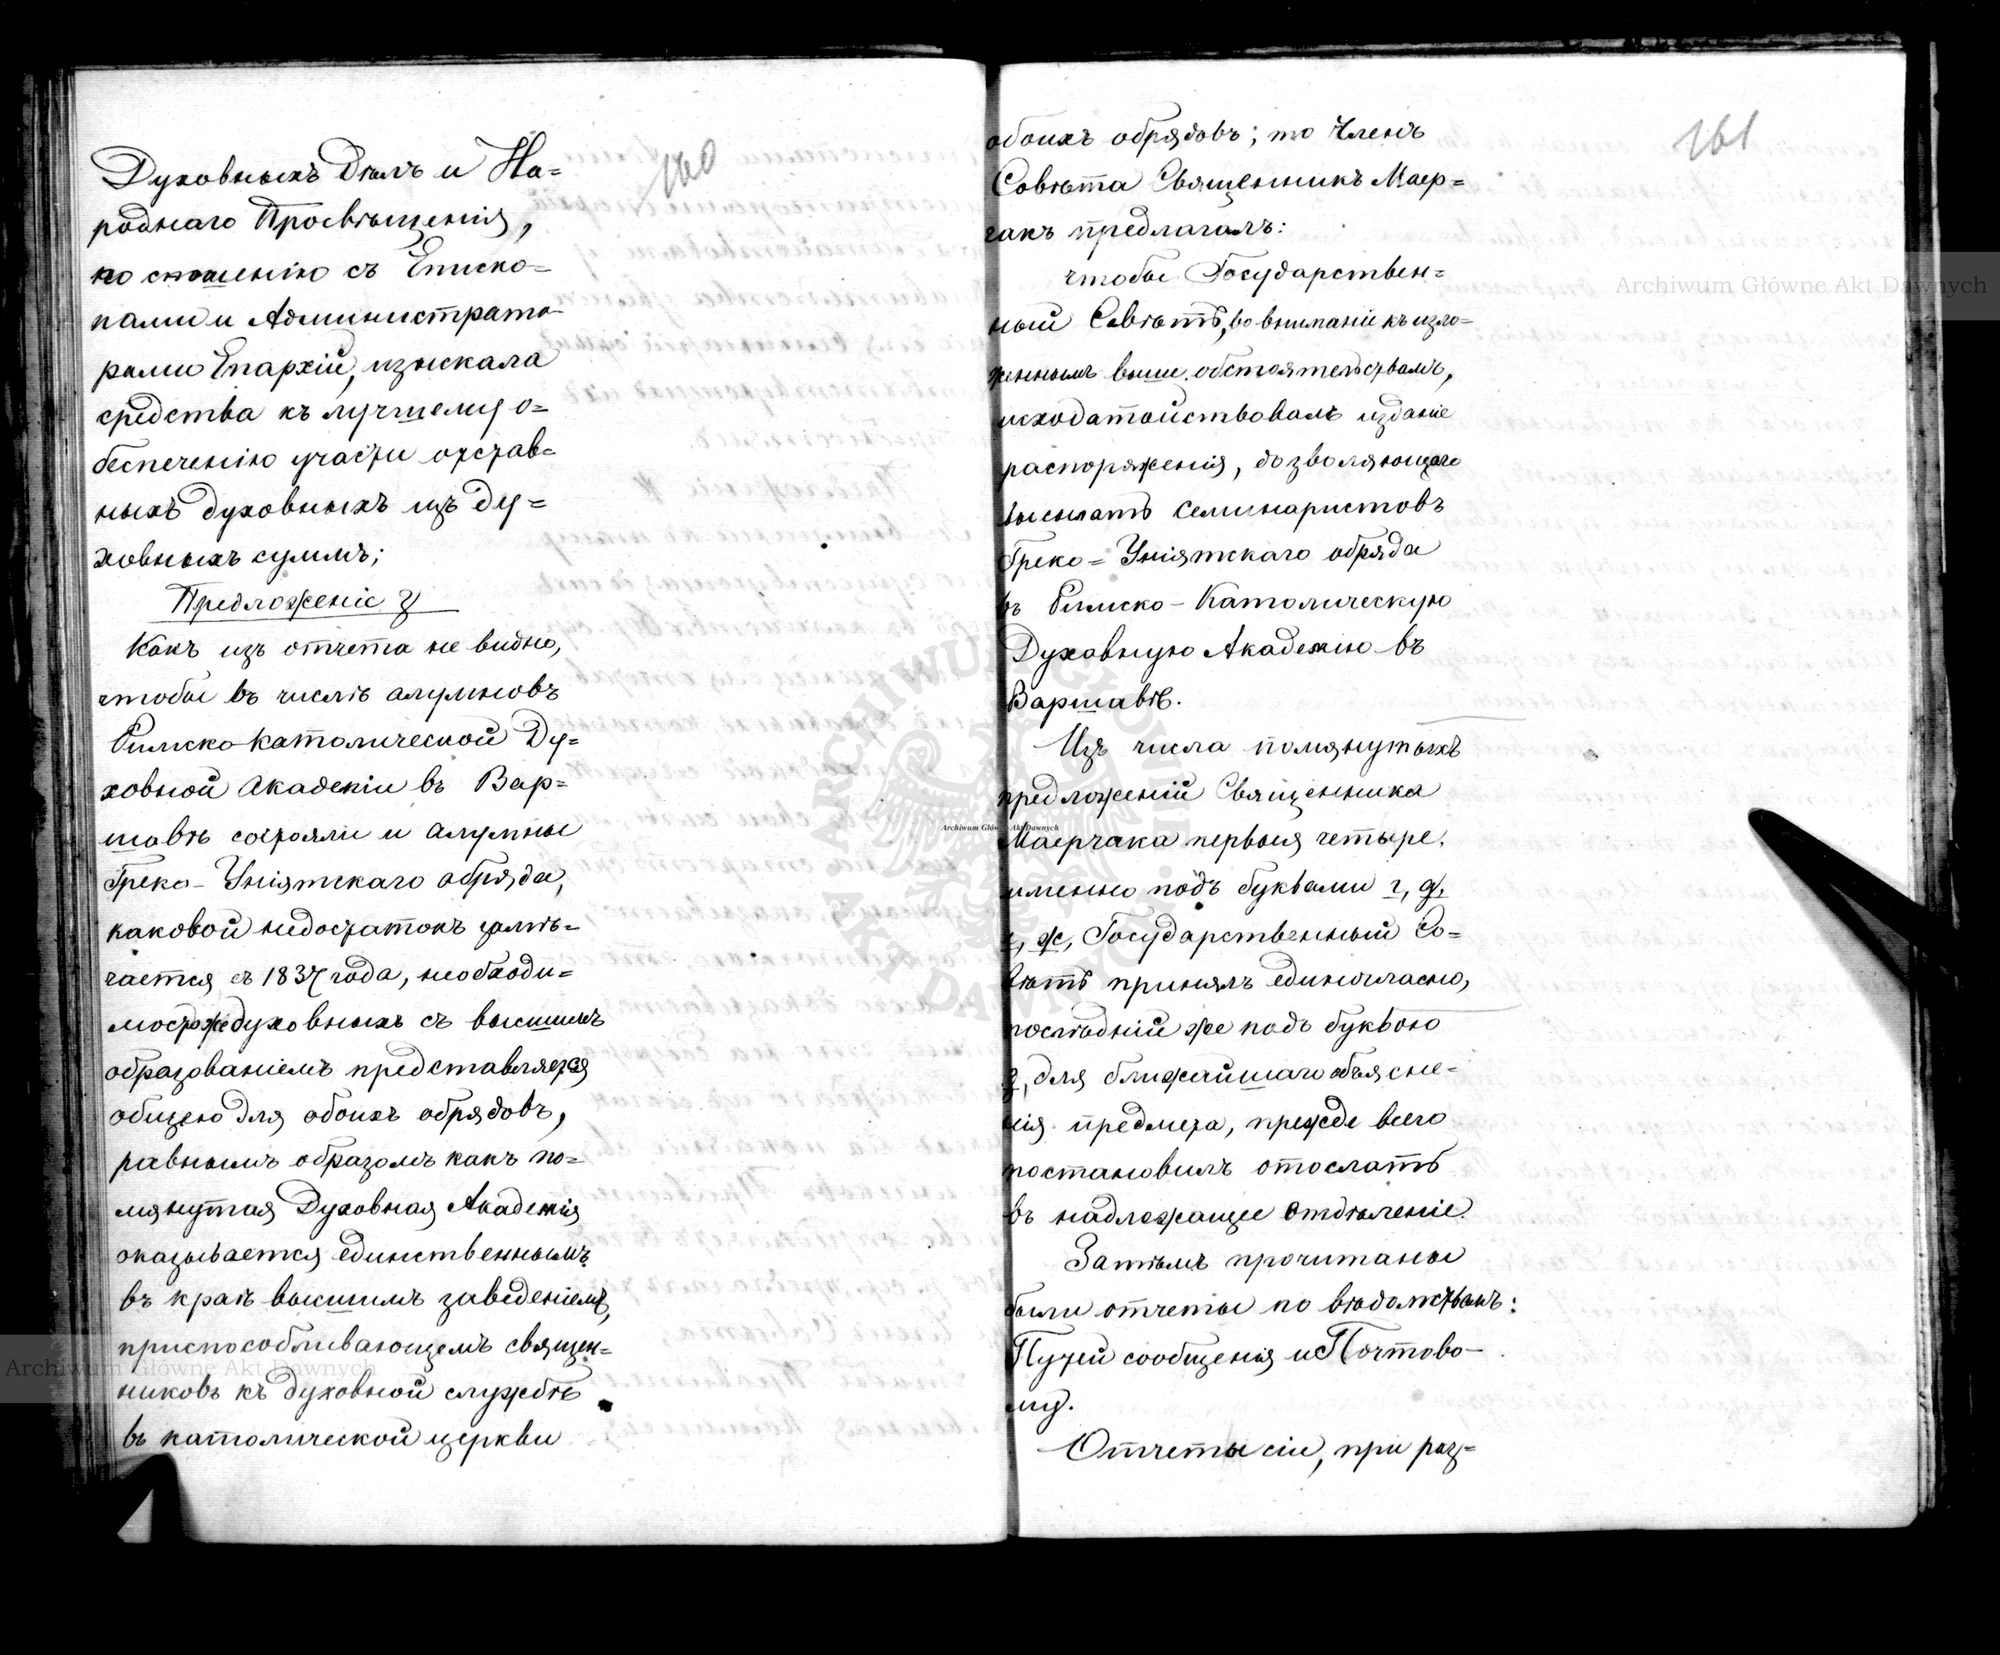 160
Духовныхъ Дѣлъ и На=
роднаго Просвѣщенія,
по сношенію съ Еписко=
пами и Администрато-
рами Епархій, изыскала
средства къ лучшему о=
безпеченію участи отстав=
ныхъ духовныхъ изъ ду=
ховныхъ суммъ;
Предложеніе З
Какъ изъ отчета не видно,
чтобы въ числѣ алумновъ
Римско католической Ду=
ховной Академіи въ Вар=
шавѣ состояли и алумны
Греко-Уніятскаго обряда,
каковой недостатокъ замѣ=
чается съ 1837 года, необходи=
мость же духовныхъ съ высшимъ
образованіемъ представляется
общею для обоихъ обрядовъ,
равнымъ образомъ какъ по=
мянутая Духовная Академія
оказывается единственнымъ
въ краѣ высшимъ заведеніемъ,
приспособливающемъ священ=
никовъ къ духовной службѣ
въ католической церкви
161
обоихъ обрядовъ; то Членъ
Совѣта Священникъ Маер=
чакъ предлагалъ:
чтобы Государствен=
ный Совѣтъ, во вниманіе къ изло=
женнымъ выше обстоятельствамъ,
исходатайствовалъ изданіе
распоряженія, дозволяющаго
высылать семинаристовъ
Греко=Уніятскаго обряда
въ Римско-Католическую
Духовную Академію въ
Варшавѣ.
Изъ числа помянутыхъ
предложеній Священника
Маерчака первыя четыре,
именно подъ буквами г, д,
е, ж, Государственный Со=
вѣтъ принялъ единогласно,
послѣдній же подъ буквою
з, для ближайшаго объясне-
нія предмета, прежде всего
постановилъ отослать
въ надлежащее Отдѣленіе.
Затѣмъ прочитаны
были отчеты по вѣдомствамъ:
Путей сообщенія и Почтово-
му.
Отчеты сіи, при раз=
Archiwum Główne Akt Dawnych
Archiwum Główne Akt Dawnych
Archiwum Główne Akt Dawnych
ARCHIWUM GŁÓWNE AKT DAWNYCH